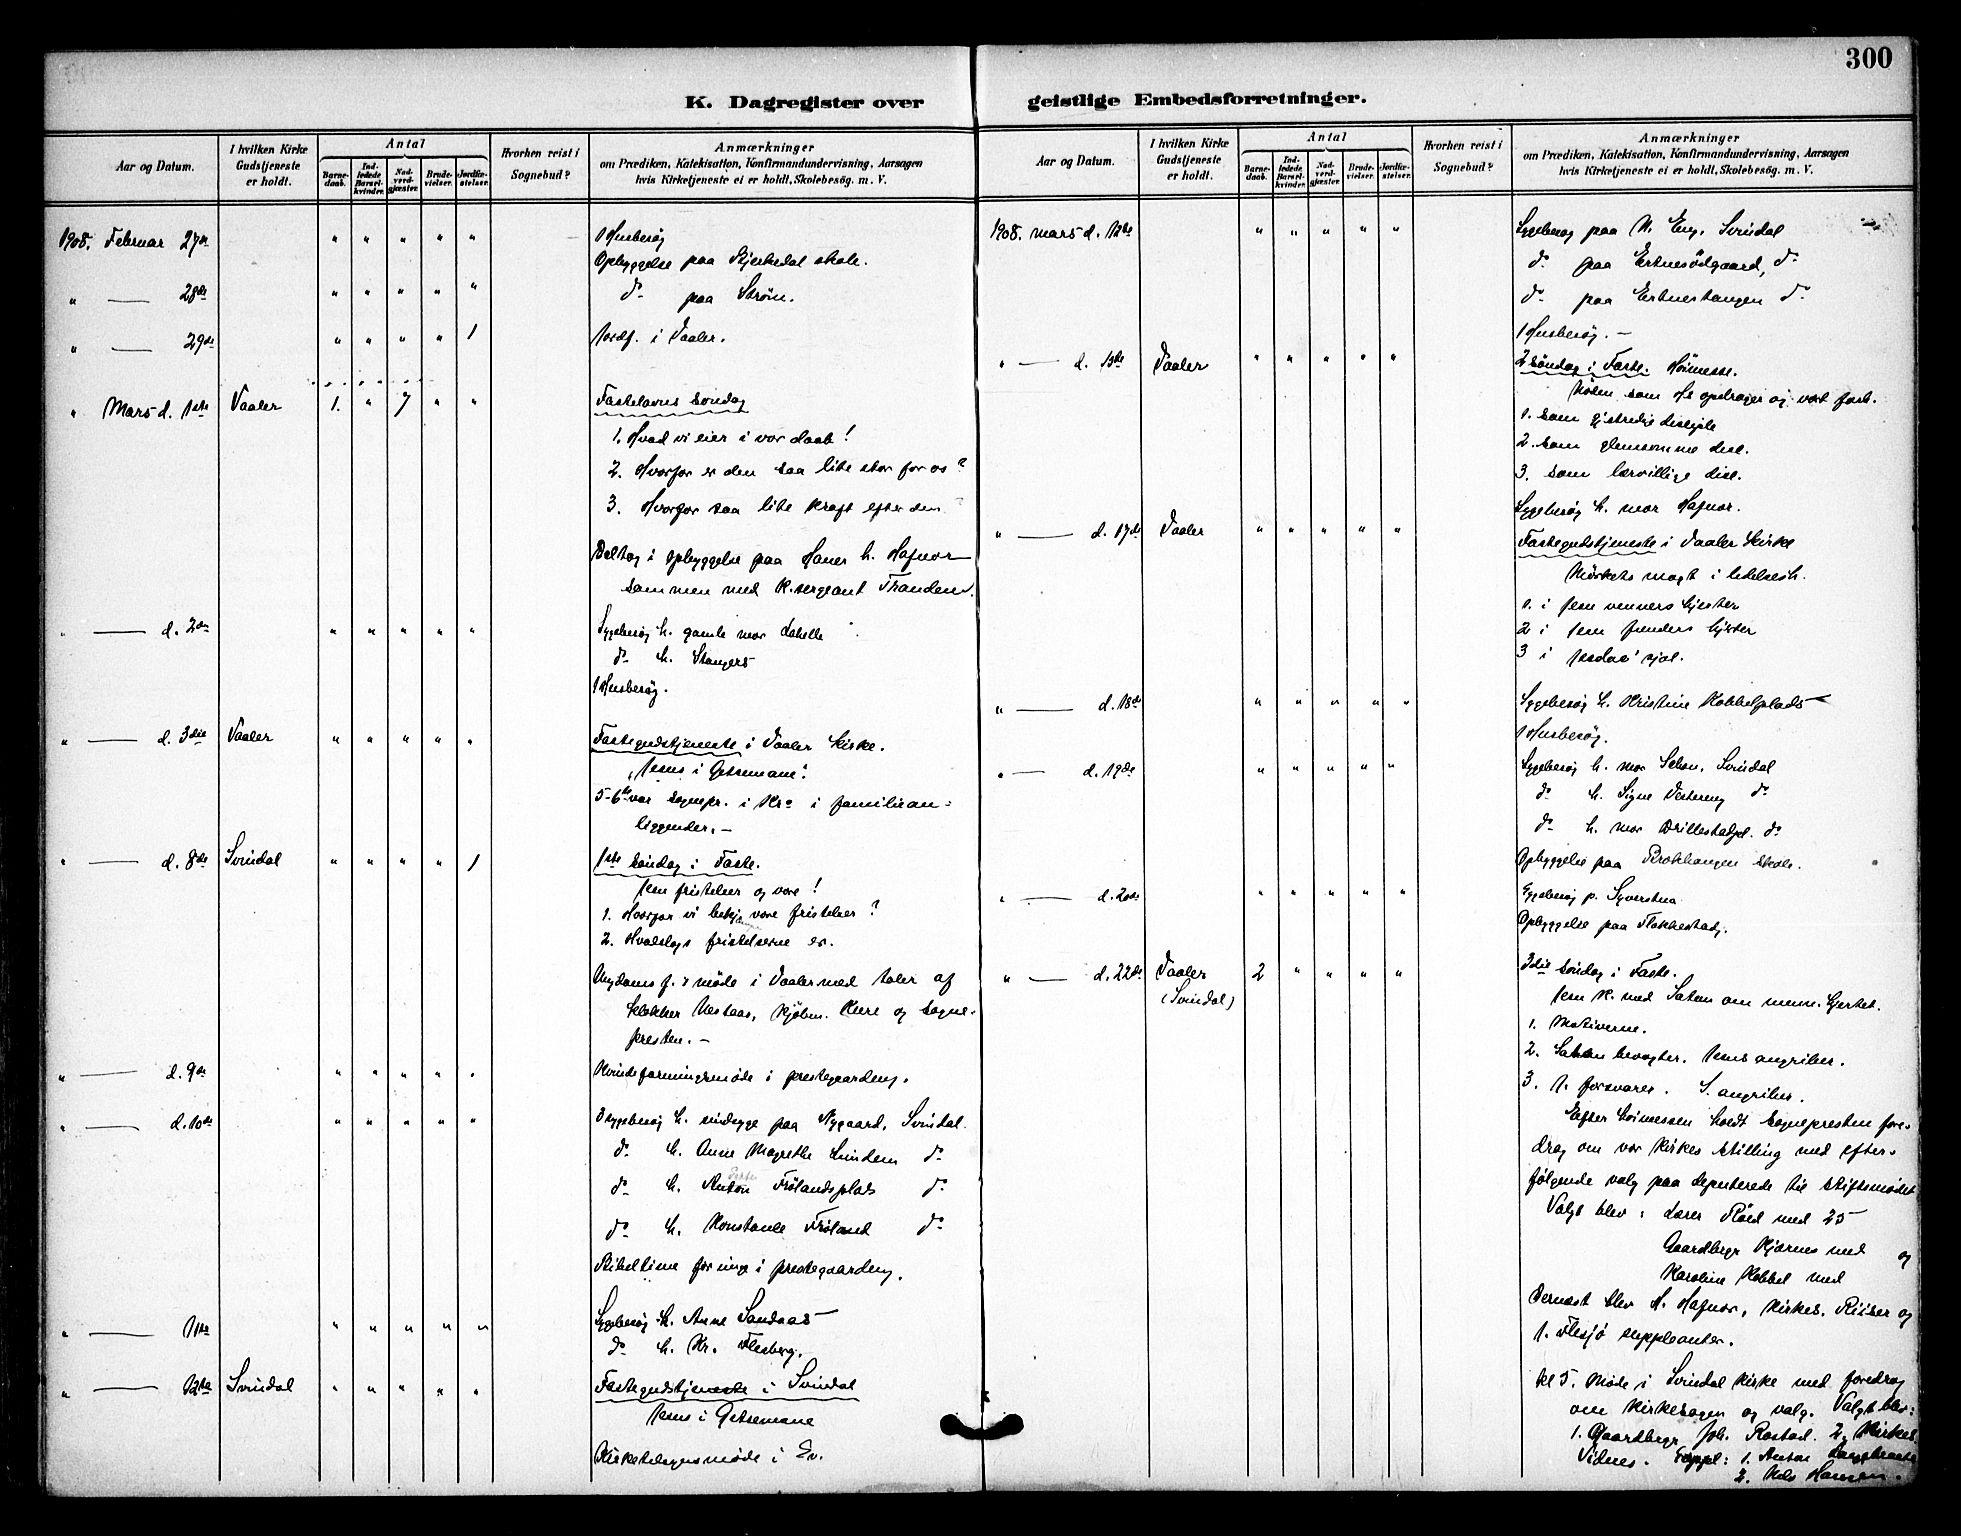 300
K. Dagregister over geistlige Embedsforretninger.
Aar og Datum.
I hvilken Kirke Gudstjeneste er holdt.
Antal
Barnedaab.
Indledede Barselkvinder.
Nadverdgjæster.
Brudevielser.
Jordfæstelser.
Hvorhen reist i Sognebud?
Anmærkninger
om Prædiken, Katekisation, Konfirmandundervisning, Aarsagen
hvis Kirketjeneste ei er holdt, Skolebesøg. m. V.
1908. Februar 27de " " " " " 1 Husbesøg
Opbyggelse paa Kjerkedal skole.
" — 28de " " " " " do paa Strøm.
" — 29de " " " " 1 Jordf. i Vaaler.
" Mars d. 1ste Vaaler 1. " 7 " " Fastelavns søndag
1. Hvad vi eier i vor daab!
2. Hvorfor er den saa lite stor for os?
3. Hvorfor saa lite kraft efter den
Deltog i opbyggelse paa Haner h. Hafnor
sammen med K. sergeant Tranden.
" — d. 2den " " " " " Sygebesøg h. gamle mor
do h. Stangers
1 Husbesøg.
" — d. 3die Vaaler " " " " " Fastegudstjeneste i Vaaler kirke.
"Jesus i Getsemane".
5-6te var sognepr. i Kra i familiean-
liggender. —
" — d. 8de Svindal " " " " 1 1ste søndag i Faste.
Jesu fristelser og vore!
1. Hvorfor vi bekj. vore fristelser?
2. Hvadslags fristelserne er.
Ungdomsf.s møde i Vaaler med taler af
klokker Nestaas, kjøbm. Kure og sogne-
presten. —
" — d. 9de " " " " " Kvindeforeningsmøde i prestegaarden.
" — d. 10de " " " " " Sygebesøg h. paa Nygaard, Svindal
do h. Anne Magrethe Lindem do
do h. Anton Frølandsplads do
do h. Konstanse Frøland do
Bibeltime for unge i prestegaarden.
" — 11te " " " " " Sygebesøg h. Anne Sandaas
do h. Kr. Flesberg.
" — 12te Svindal " " " " " Fastegudstjeneste i Svindal
Jesus i Getsemane
Kirketilsynsmøde i Sv.
Aar og Datum.
I hvilken Kirke Gudstjeneste er holdt.
Antal
Barnedaab.
Indledede Barselkvinder.
Nadverdgjæster.
Brudevielser.
Jordfæstelser.
Hvorhen reist i Sognebud?
Anmærkninger
om Prædiken, Katekisation, Konfirmandundervisning, Aarsagen
hvis Kirketjeneste ei er holdt, Skolebesøg. m. V.
1908. mars d. 12te " " " " " Sygebesøg paa N. Eng. Svindal
do paa Ertnesødgaard, do
do paa Ertnestangen do
1 Husbesøg. —
" — d. 15de Vaaler " " " " " 2 søndag i Faste. Høimesse.
som opdrager og vort
1. som disciple
2. som disc.
3. som lærvillige disc.
Sygebesøg h. mor Hafnor.
" — d. 17de Vaaler " " " " " Fastegudstjeneste i Vaaler kirke
Mørkets magt i lidelsesh.
1. i Jesu venners hjerter
2 i Jesu fienders hjerter
3 i Judas' sjæl.
" — d. 18de " " " " " Sygebesøg h. Kristine Kobbelplads
1 Husbesøg.
" — d. 19de " " " " " Sygebesøg h. mor Svindal
do h. Signe Vestereng do
do h. mor do
Opbyggelse paa skole.
" — d. 20de " " " " " Sygebesøg p. Syverstua
Opbyggelse paa Flakkestad.
" — d. 22de Vaaler 2 " " " " 3die søndag i Faste.
(Svindal) Jesu K. med Satan om menn. hjertet.
1. Motiverne.
2. Satan bevogter. Jesus angriber.
3. J. forsvarer. S. angriber.
Efter høimessen holdt sognepresten fore-
drag om vor kirkes stilling med efter-
følgende valg paa deputerede til stiftsmødet
Valgt blev: Lærer Røed med 25
Gaardbrgr Kjærnes med og
Karoline Kobbel med
Dernæst blev H. Hafnor, kirkes. Riiser og
J. Flesjø suppleanter.
kl 5. Møde i Svindal kirke med foredrag
om kirkesagen og valg. Valgt blev:
1. Gaardbrgr Joh. Rostad. 2. Kirkes.
Vidnes. Suppl: 1. Anton
2. Nils Hansen.